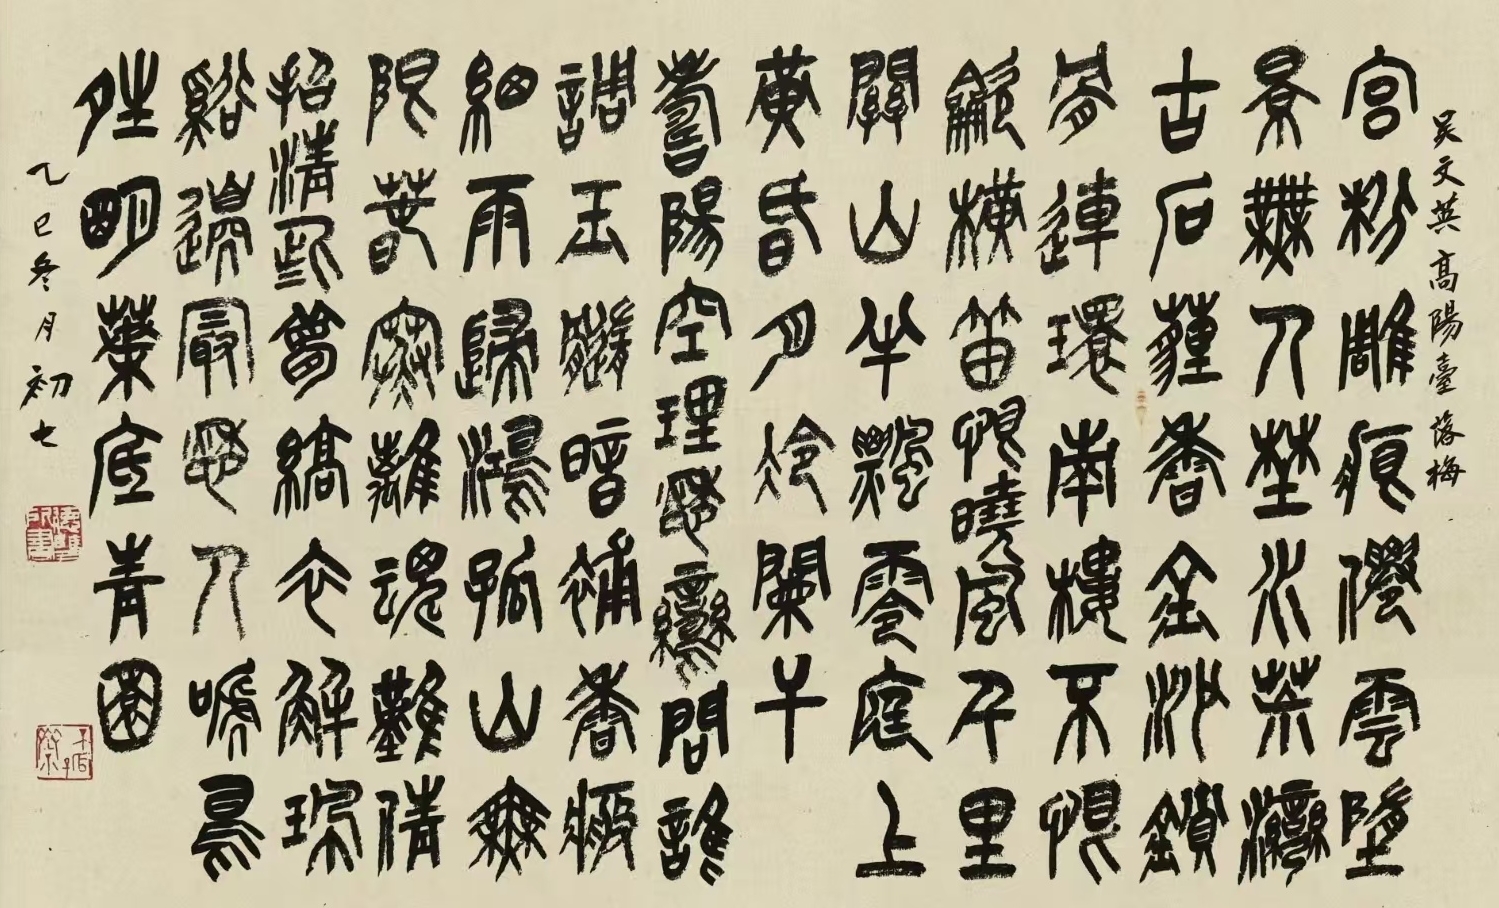 吳文英高陽臺落梅
宮粉雕痕僊雲墮
景無人埜水荒灣
古石薶香金沙鎖
骨連環南樓不恨
龡橫笛恨曉風千里
關山半飄零庭上
黃昏月冷闌干
壽陽空理愁鸞問誰
調玉髓暗補香瘢
細雨歸鴻孤山無
限春寒離魂難倩
招清些夢縞衣解珮
谿邊最愁人嗁鳥
晴明葉底青圓
乙巳冬月初七